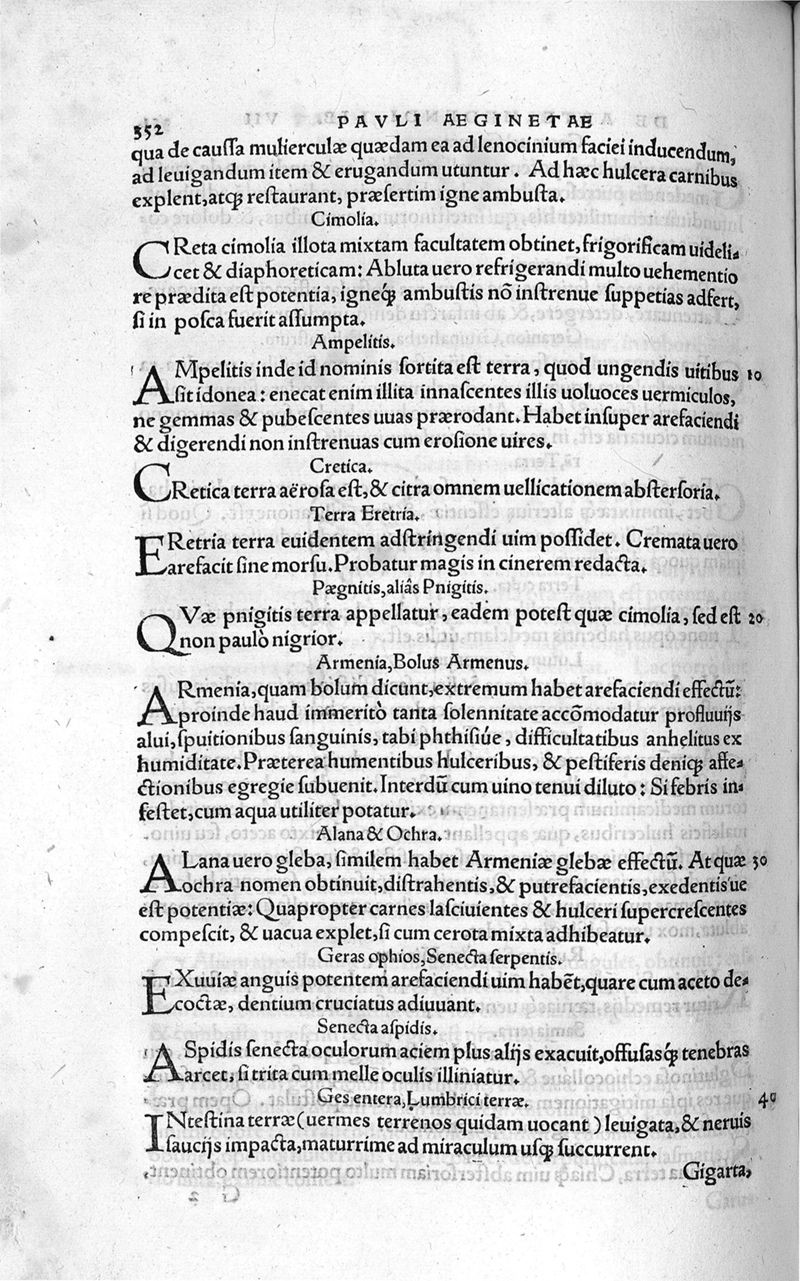 352 PAVLI AEGINETAE
qua de cauſſa mulierculæ quædam ea ad lenocinium faciei inducendum,
ad leuigandum item & erugandum utuntur. Ad hæc hulcera carnibus
explent, atq; reſtaurant, præſertim igne ambuſta.
Cimolia.
CReta cimolia illota mixtam facultatem obtinet, frigorificam uideli-
cet & diaphoreticam: Abluta uero refrigerandi multo uehementio
re prædita eſt potentia, igneq́; ambuſtis nõ inſtrenue ſuppetias adfert,
ſi in poſca fuerit aſſumpta.
Ampelitis.
AMpelitis inde id nominis ſortita eſt terra, quod ungendis uitibus 10
ſit idonea: enecat enim illita innaſcentes illis uoluoces uermiculos,
ne gemmas & pubeſcentes uuas prærodant. Habet inſuper arefaciendi
& digerendi non inſtrenuas cum eroſione uires.
Cretica.
CRetica terra aëroſa eſt, & citra omnem uellicationem abſterſoria.
Terra Eretria.
ERetria terra euidentem adſtringendi uim poſſidet. Cremata uero
arefacit ſine morſu. Probatur magis in cinerem redacta.
Pægnitis, aliâs Pnigitis.
QVæ pnigitis terra appellatur, eadem poteſt quæ cimolia, ſed eſt 20
non paulò nigrior.
Armenia, Bolus Armenus.
ARmenia, quam bolum dicunt, extremum habet arefaciendi effectũ:
proinde haud immeritò tanta ſolennitate accõmodatur profluuijs
alui, ſpuitionibus ſanguinis, tabi phthiſiúe, difficultatibus anhelitus ex
humiditate. Præterea humentibus hulceribus, & peſtiferis deniq; affe-
ctionibus egregie ſubuenit. Interdũ cum uino tenui diluto: Si febris in-
feſtet, cum aqua utiliter potatur.
Alana & Ochra.
ALana uero gleba, ſimilem habet Armeniæ glebæ effectũ. At quæ 30
ochra nomen obtinuit, diſtrahentis, & putrefacientis, exedentis'ue
eſt potentiæ: Quapropter carnes laſciuientes & hulceri ſupercreſcentes
compeſcit, & uacua explet, ſi cum cerota mixta adhibeatur.
Geras ophios, Senecta ſerpentis.
EXuuiæ anguis potentem arefaciendi uim habẽt, quare cum aceto de-
coctæ, dentium cruciatus adiuuant.
Senecta aſpidis.
ASpidis ſenecta oculorum aciem plus alijs exacuit, offuſasq́; tenebras
arcet, ſi trita cum melle oculis illiniatur.
Ges entera, Lumbrici terræ. 40
INteſtina terræ (uermes terrenos quidam uocant) leuigata, & neruis
ſaucijs impacta, maturrime ad miraculum uſq; ſuccurrent.
Gigarta,